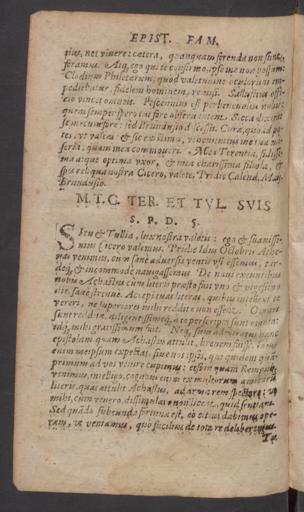 EPIST. FAM.
pius, nec vivere: cætera, quanquam ferenda non sunt,
feramus. Atq; ego qui te confirmo, ipse me non possum.
Clodium Philetærum, quod valetudine oculorum im-
pediebatur, fidelem hominem, remisi. Sallustius offi-
cio vincit omneis. Pescennius est perbenevolus nobis:
quem semper spero tui fore observantem. Sicca dixerat
se mecum fore: sed Brundusio discessit. Cura, quod po-
tes, ut valeas: & sic existimes, me vehementius tua mi-
seria, quàm mea commoveri. Mea Terentia, fidissi-
ma atque optima uxor, & mea charissima filiola, &
spes reliqua nostra Cicero, valete. Pridie Calend. Maii
Brundusio.
M. T. C. TER. ET TVL. SVIS
S. P. D. 5.
SI tu & Tullia, lux nostra valetis: ego & suavissi-
mus Cicero valemus. Pridie Idus Octobris Athe-
nas venimus, cum sanè adversis ventis usi essemus, tar-
deq; & incommodè navigassemus. De navi exeuntibus
nobis Achastus cum literis prestò fuit uno & vigesimo
die, sanè strenuè. Accepi tuas literas, quibus intellexi te
vereri, ne superiores mihi redditæ non essent. Omnes
sunt redditæ, diligentissimeq; à te perscripta sunt omnia:
idq; mihi gratissimum fuit. Neq; sum admiratus hanc
epistolam quam Achastus attulit, brevem fuisse.
enim meipsum expectas, sive nos ipsos, qui quidem quàm
primum ad vos venire cupimus: etsi in quam Rempub.
venimus, intelligo, cognovi enim ex multorum amicorum
literis, quas attulit Achastus, ad arma rem spectare: ut
mihi, cum venero, dissimulare non liceat, quid sentiam.
Sed quando subeunda fortuna est, eò citius dabimus ope-
ram, ut veniamus, quò facilius de tota re deliberemus.
Tu